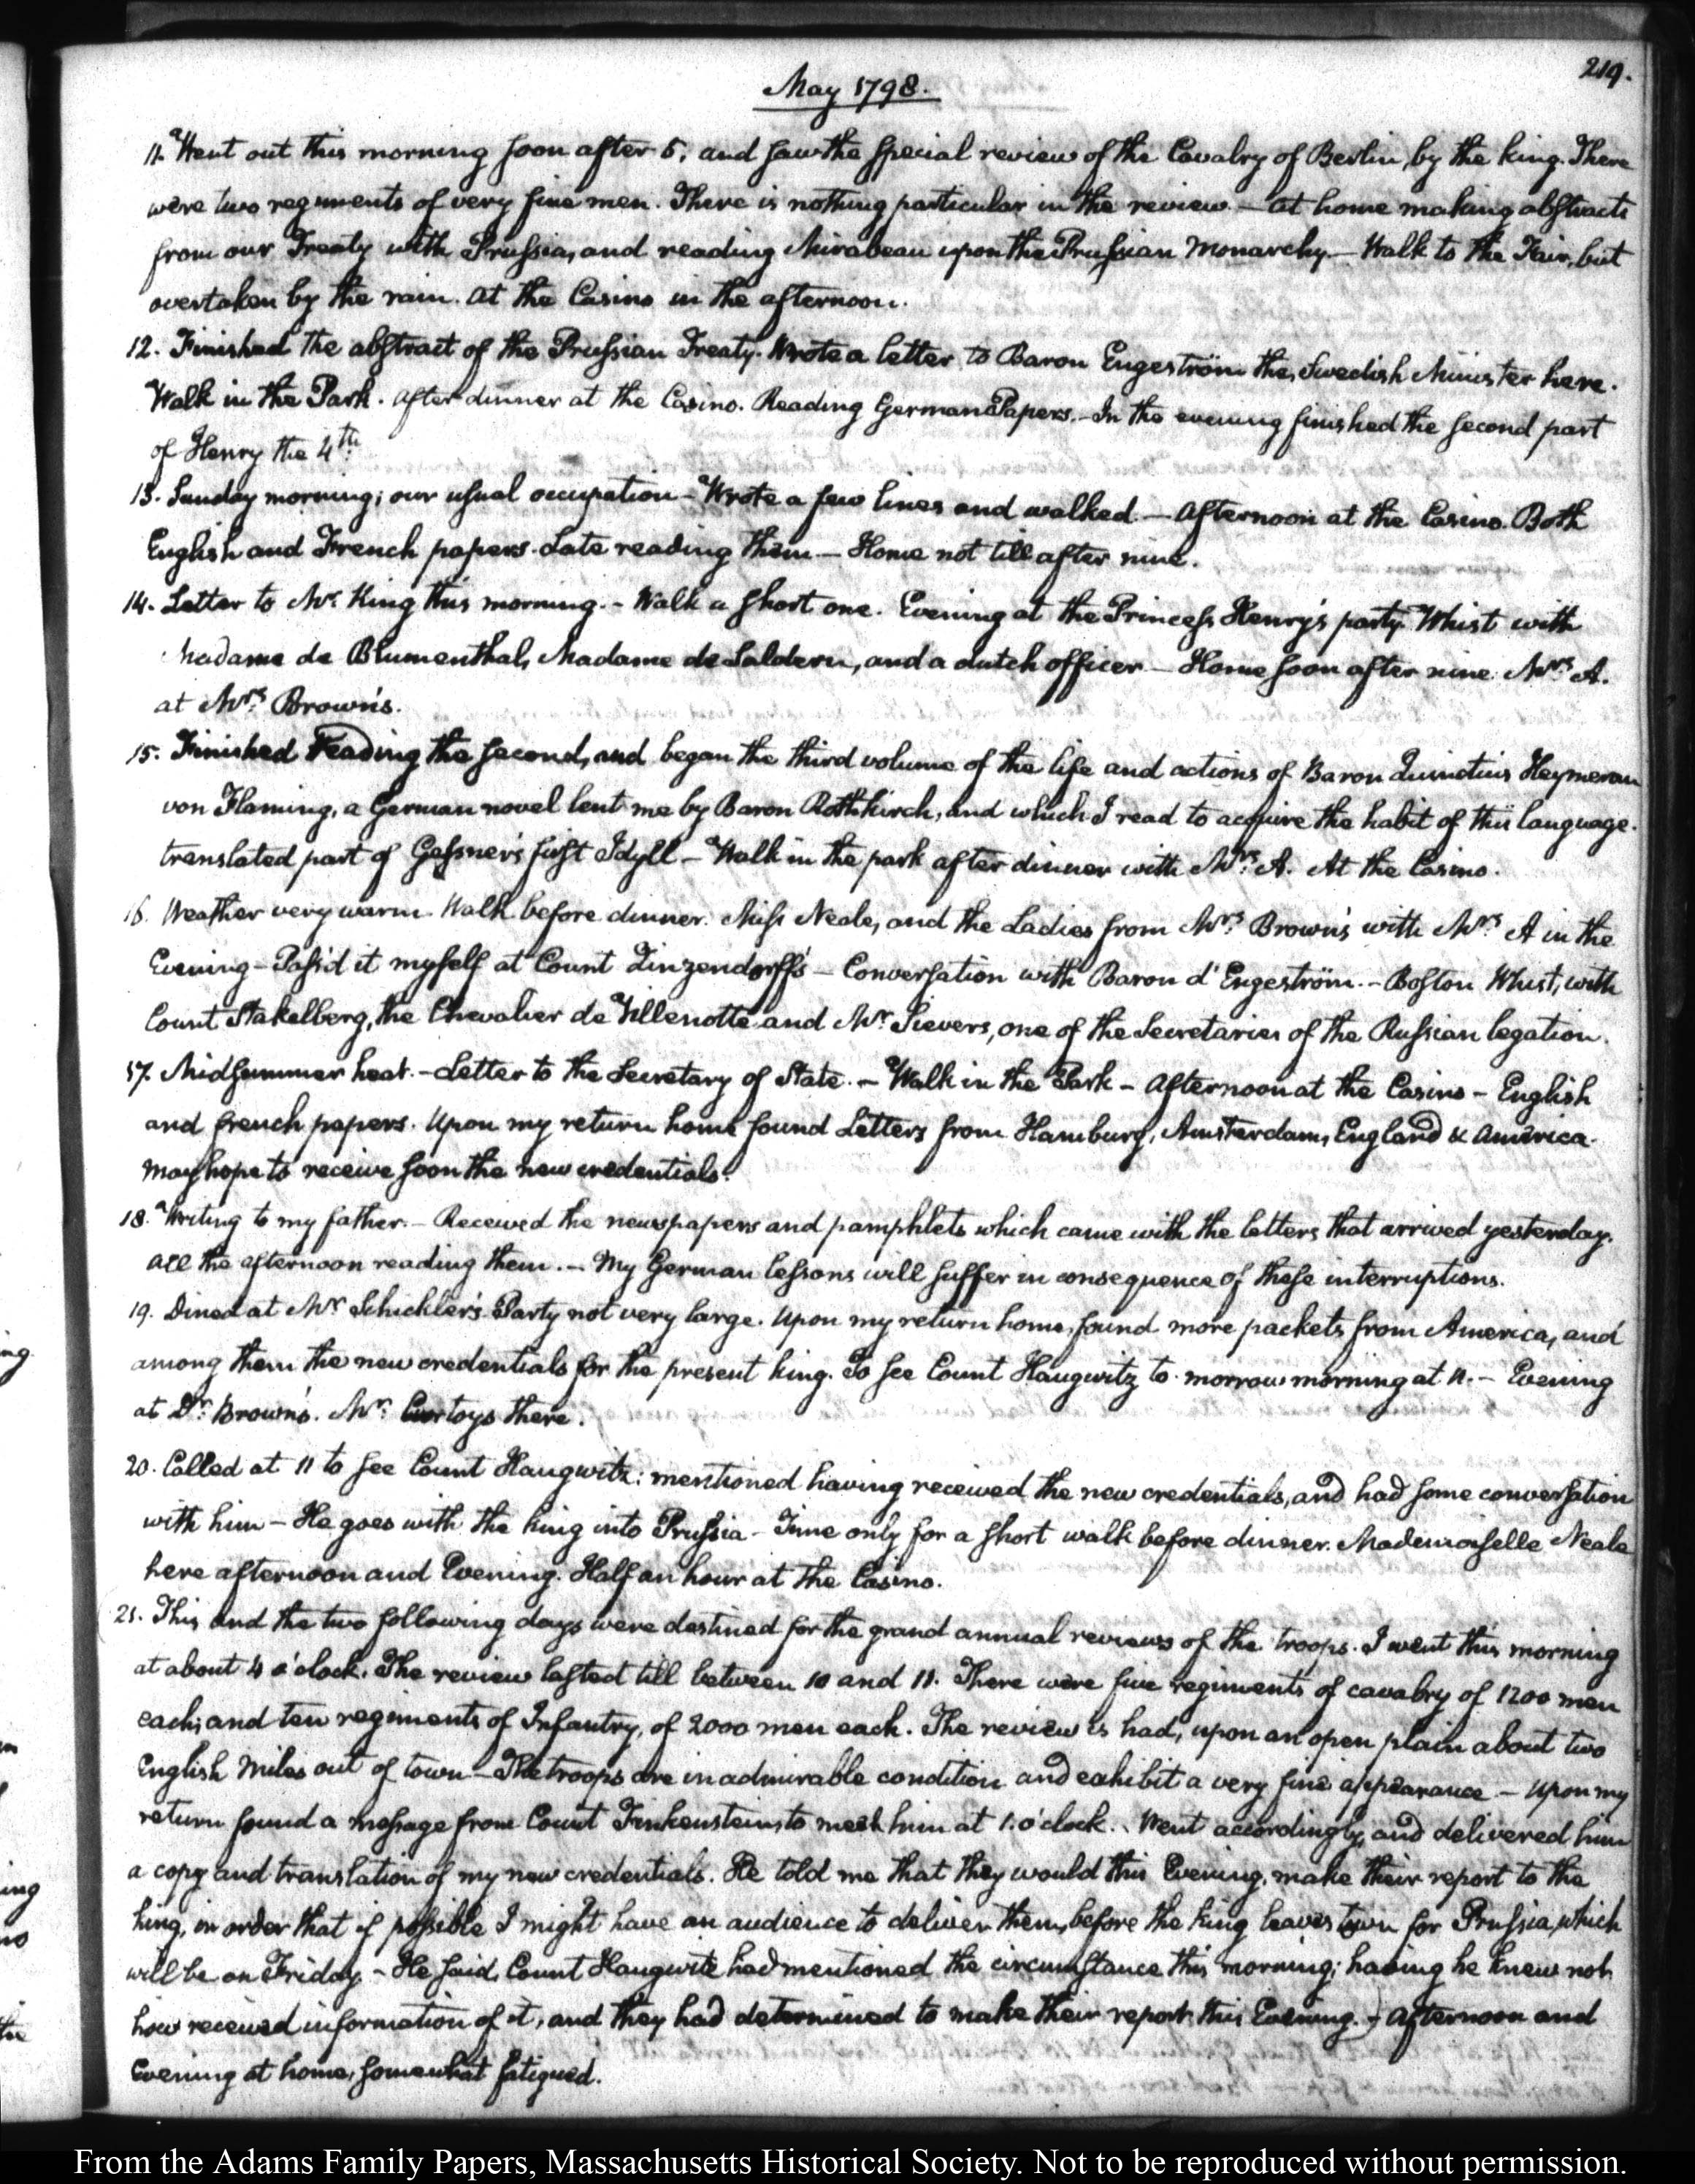 219.
May 1798.
11. Went out this morning soon after 5, and saw the special review of the Cavalry of Berlin, by the king. There
were two regiments of very fine men. There is nothing particular in the review. — At home making abstracts
from our Treaty with Prussia, and reading Mirabeau upon the Prussian Monarchy. — Walk to the Fair, but
overtaken by the rain. At the Casino in the afternoon.
12. Finished the abstract of the Prussian Treaty. Wrote a letter to Baron Engeström the Swedish Minister here.
Walk in the Park. After dinner at the Casino. Reading German Papers. — In the evening finished the second part
of Henry the 4th.
13. Sunday morning; our usual occupation — Wrote a few lines and walked — Afternoon at the Casino. Both
English and French papers. Late reading them — Home not till after nine.
14. Letter to Mr. King this morning. — Walk a short one. Evening at the Princess Henry's party. Whist with
Madame de Blumenthal, Madame de Saldern, and a dutch officer — Home soon after nine. Mrs. A.
at Mrs. Brown's.
15. Finished reading the second, and began the third volume of the life and actions of Baron Quinctius Heymeran
von Flaming, a German novel lent me by Baron Rothkirch, and which I read to acquire the habit of this language.
translated part of Gessner's first Idyll — Walk in the park after dinner with Mrs. A. At the Casino.
16. Weather very warm. Walk before dinner. Miss Neale, and the Ladies from Mrs. Brown's with Mrs. A in the
Evening — Pass'd it myself at Count Zinzendorff's — Conversation with Baron d'Engeström. — Boston Whist, with
Count Stakelberg, the Chevalier de Villenotte and Mr. Sievers, one of the Secretaries of the Russian legation.
17. Midsummer heat. — Letter to the Secretary of State. — Walk in the Park — Afternoon at the Casino — English
and french papers. Upon my return home found Letters from Hamburg, Amsterdam, England & America.
May hope to receive soon the new credentials.
18. Writing to my father. — Received the newspapers and pamphlets which came with the letters that arrived yesterday.
All the afternoon reading them. — My German lessons will suffer in consequence of these interruptions.
19. Dined at Mr. Schickler's. Party not very large. Upon my return home, found more packets from America, and
among them the new credentials for the present king. To see Count Haugwitz to-morrow morning at 11. — Evening
at Dr. Brown's. Mr. Curtoys there.
20. Called at 11 to see Count Haugwitz: mentioned having received the new credentials, and had some conversation
with him — He goes with the king into Prussia — Time only for a short walk before dinner. Mademoiselle Neale
here afternoon and Evening. Half an hour at the Casino.
21. This and the two following days were destined for the grand annual reviews of the troops. I went this morning
at about 4 o'clock. The review lasted till between 10 and 11. There were five regiments of cavalry of 1200 men
each, and ten regiments of Infantry, of 2000 men each. The review is had, upon an open plain about two
English Miles out of town — The troops are in admirable condition and exhibit a very fine appearance — Upon my
return found a message from Count Finkenstein to meet him at 1. o'clock. Went accordingly, and delivered him
a copy and translation of my new credentials. He told me that they would this Evening, make their report to the
king, in order that if possible I might have an audience to deliver them, before the king leaves town for Prussia, which
will be on Friday. — He said, Count Haugwitz had mentioned the circumstance this morning; having he knew not
how received information of it, and they had determined to make their report this Evening. — Afternoon and
Evening at home, somewhat fatigued.
From the Adams Family Papers, Massachusetts Historical Society. Not to be reproduced without permission.